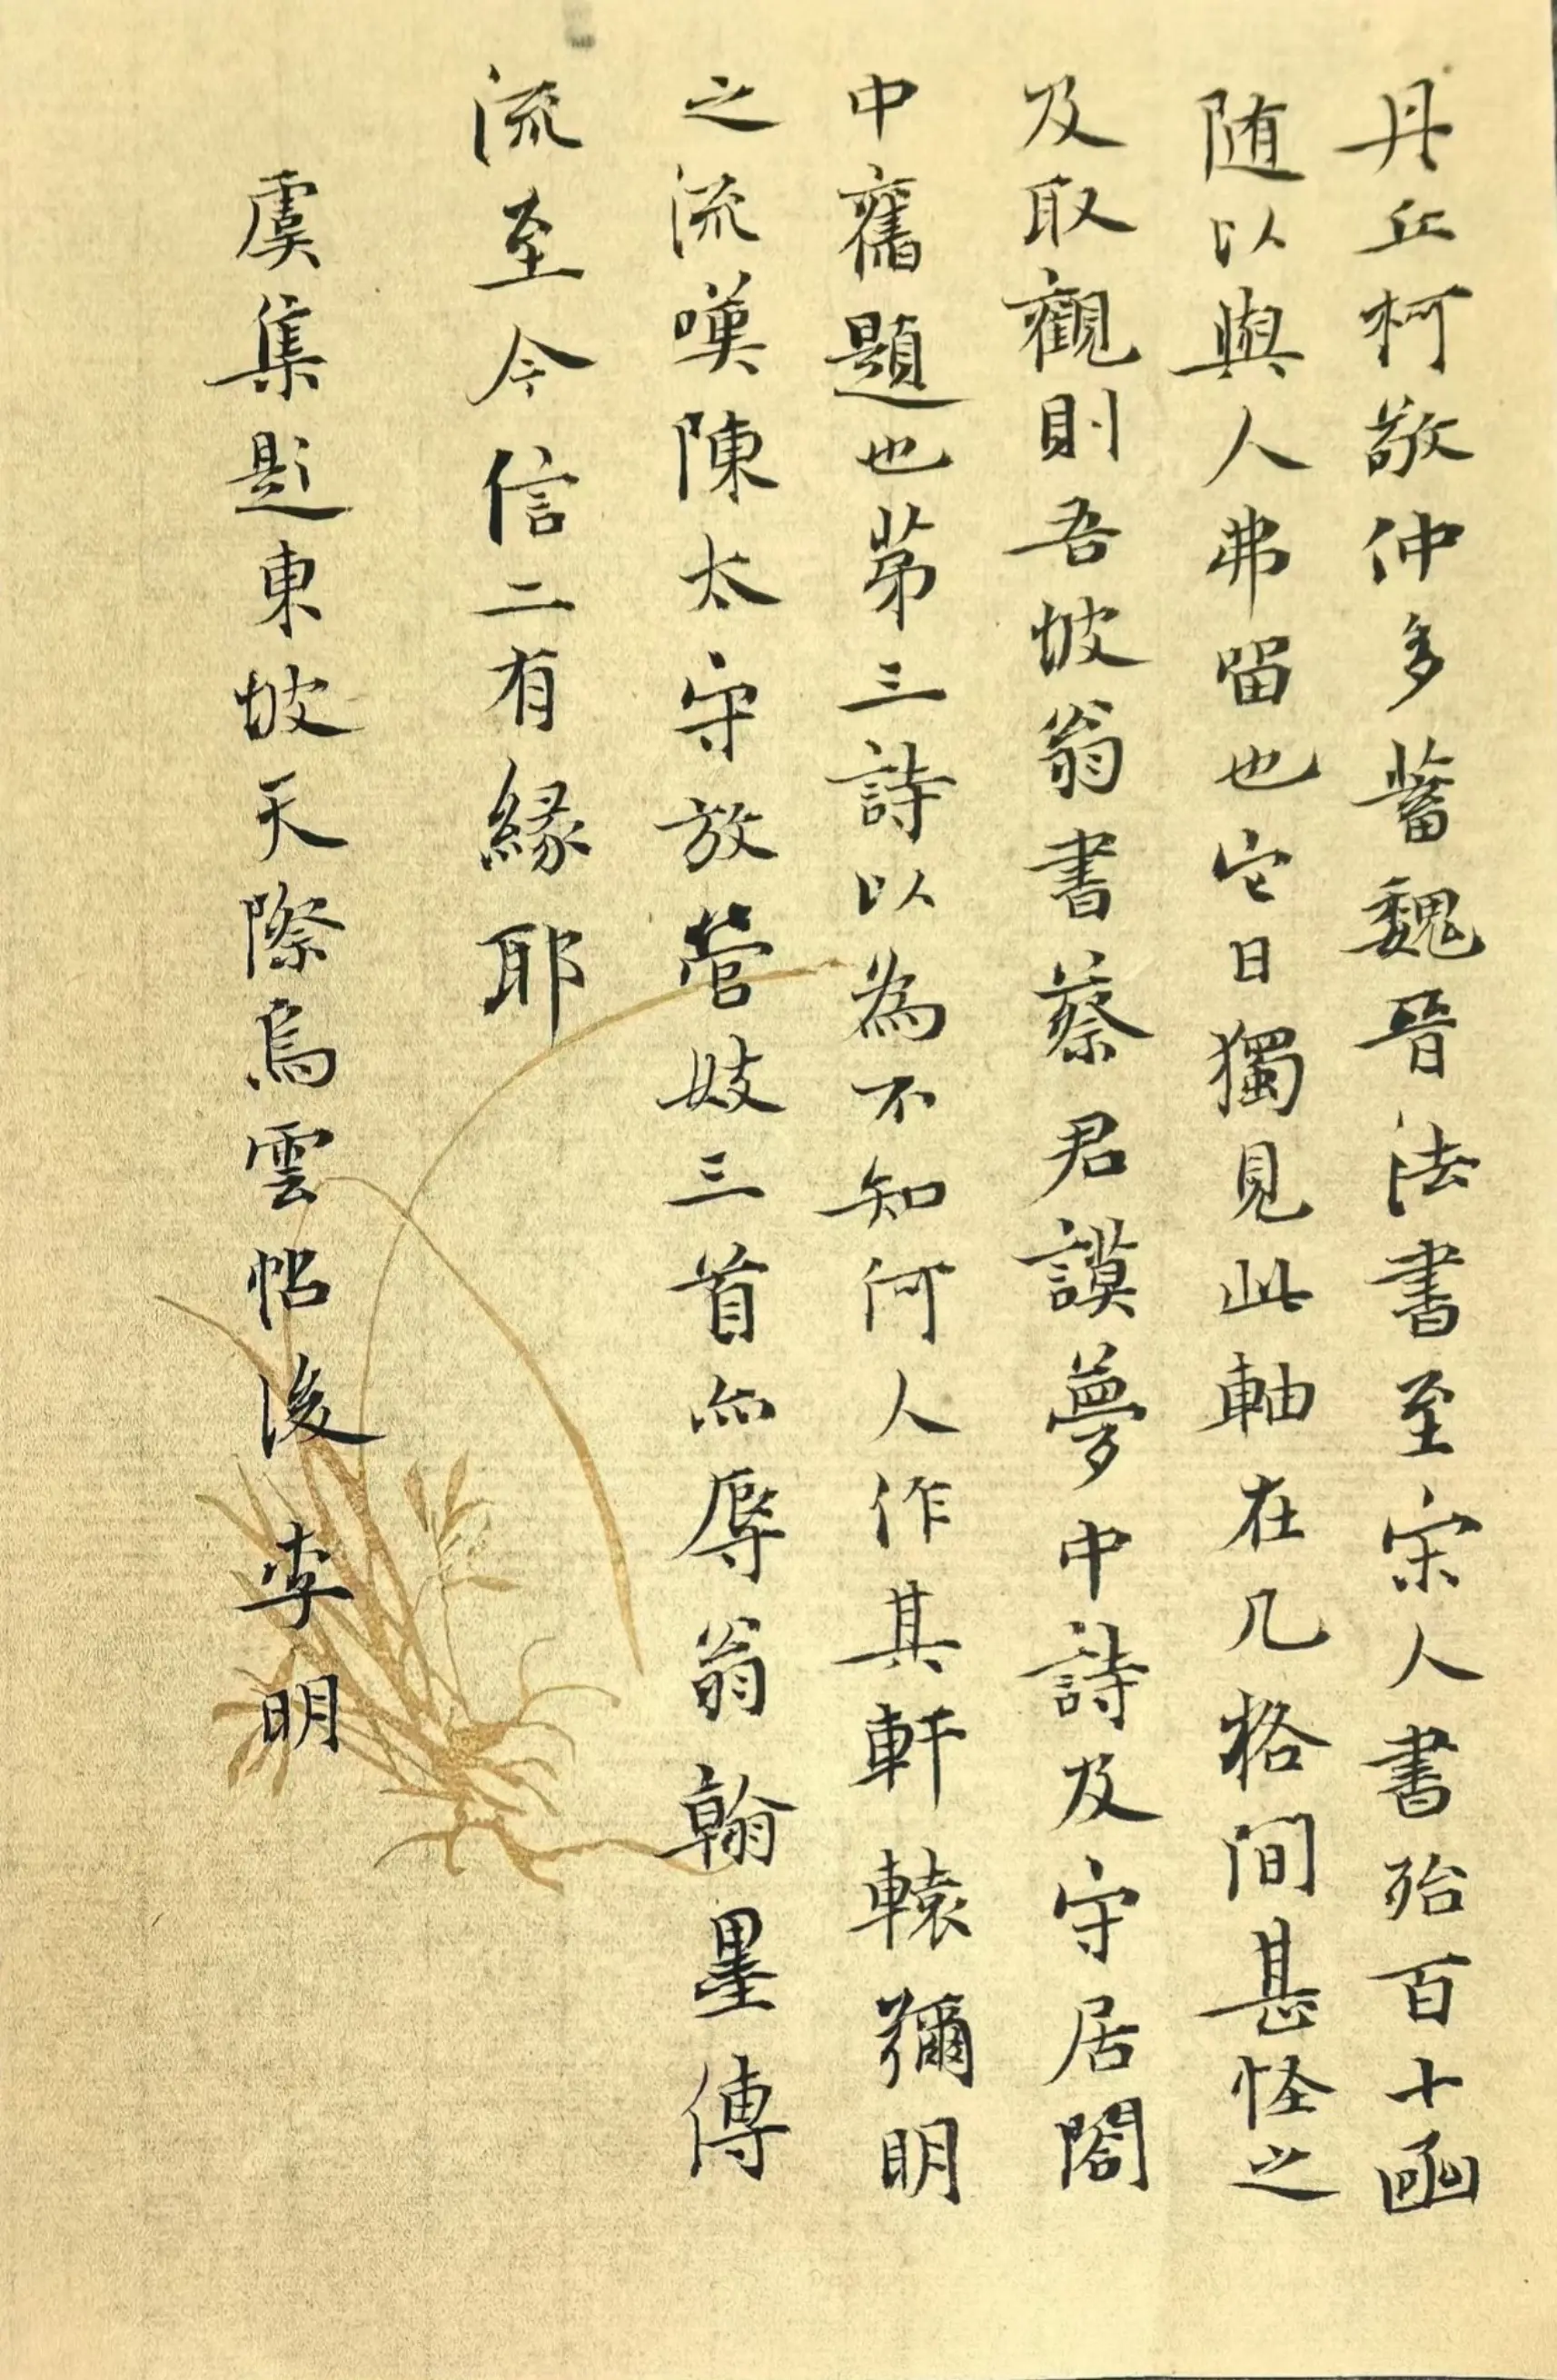 丹丘柯敬仲多蓄魏晉法書至宋人書殆百十函
随以與人弗留也它日獨見此軸在几格間甚怪之
及取觀則吾坡翁書蔡君謨夢中詩及守居閣
中舊題也苐三詩以為不知何人作其軒轅彌明
之流嘆陳太守放營妓三首亦辱翁翰墨傳
流至今信二有緣耶
虞集題東坡天際烏雲帖後 李明